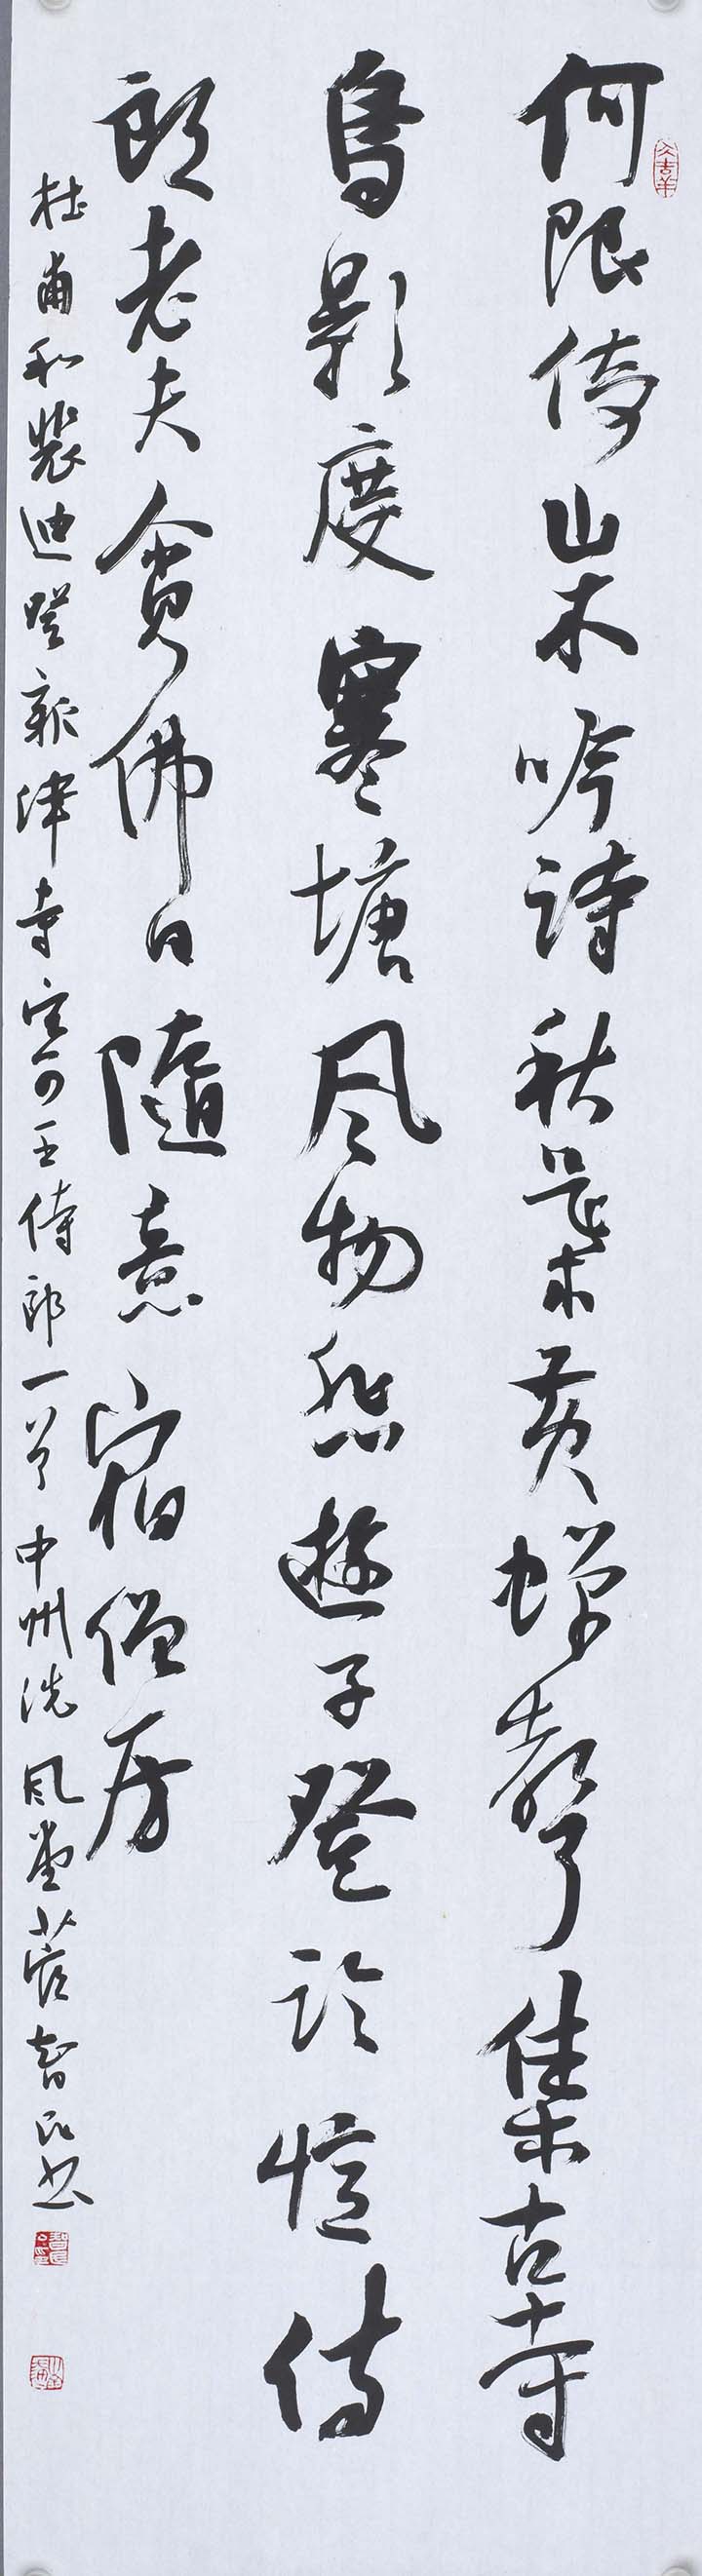 何限倚山木吟詩秋葉黃蟬聲集古寺
鳥影度寒塘風物悲遊子登臨憶侍
郎老夫貪佛日隨意宿僧房
杜甫和裴迪登新津寺寄王侍郎一首中州洗風堂菅智民書